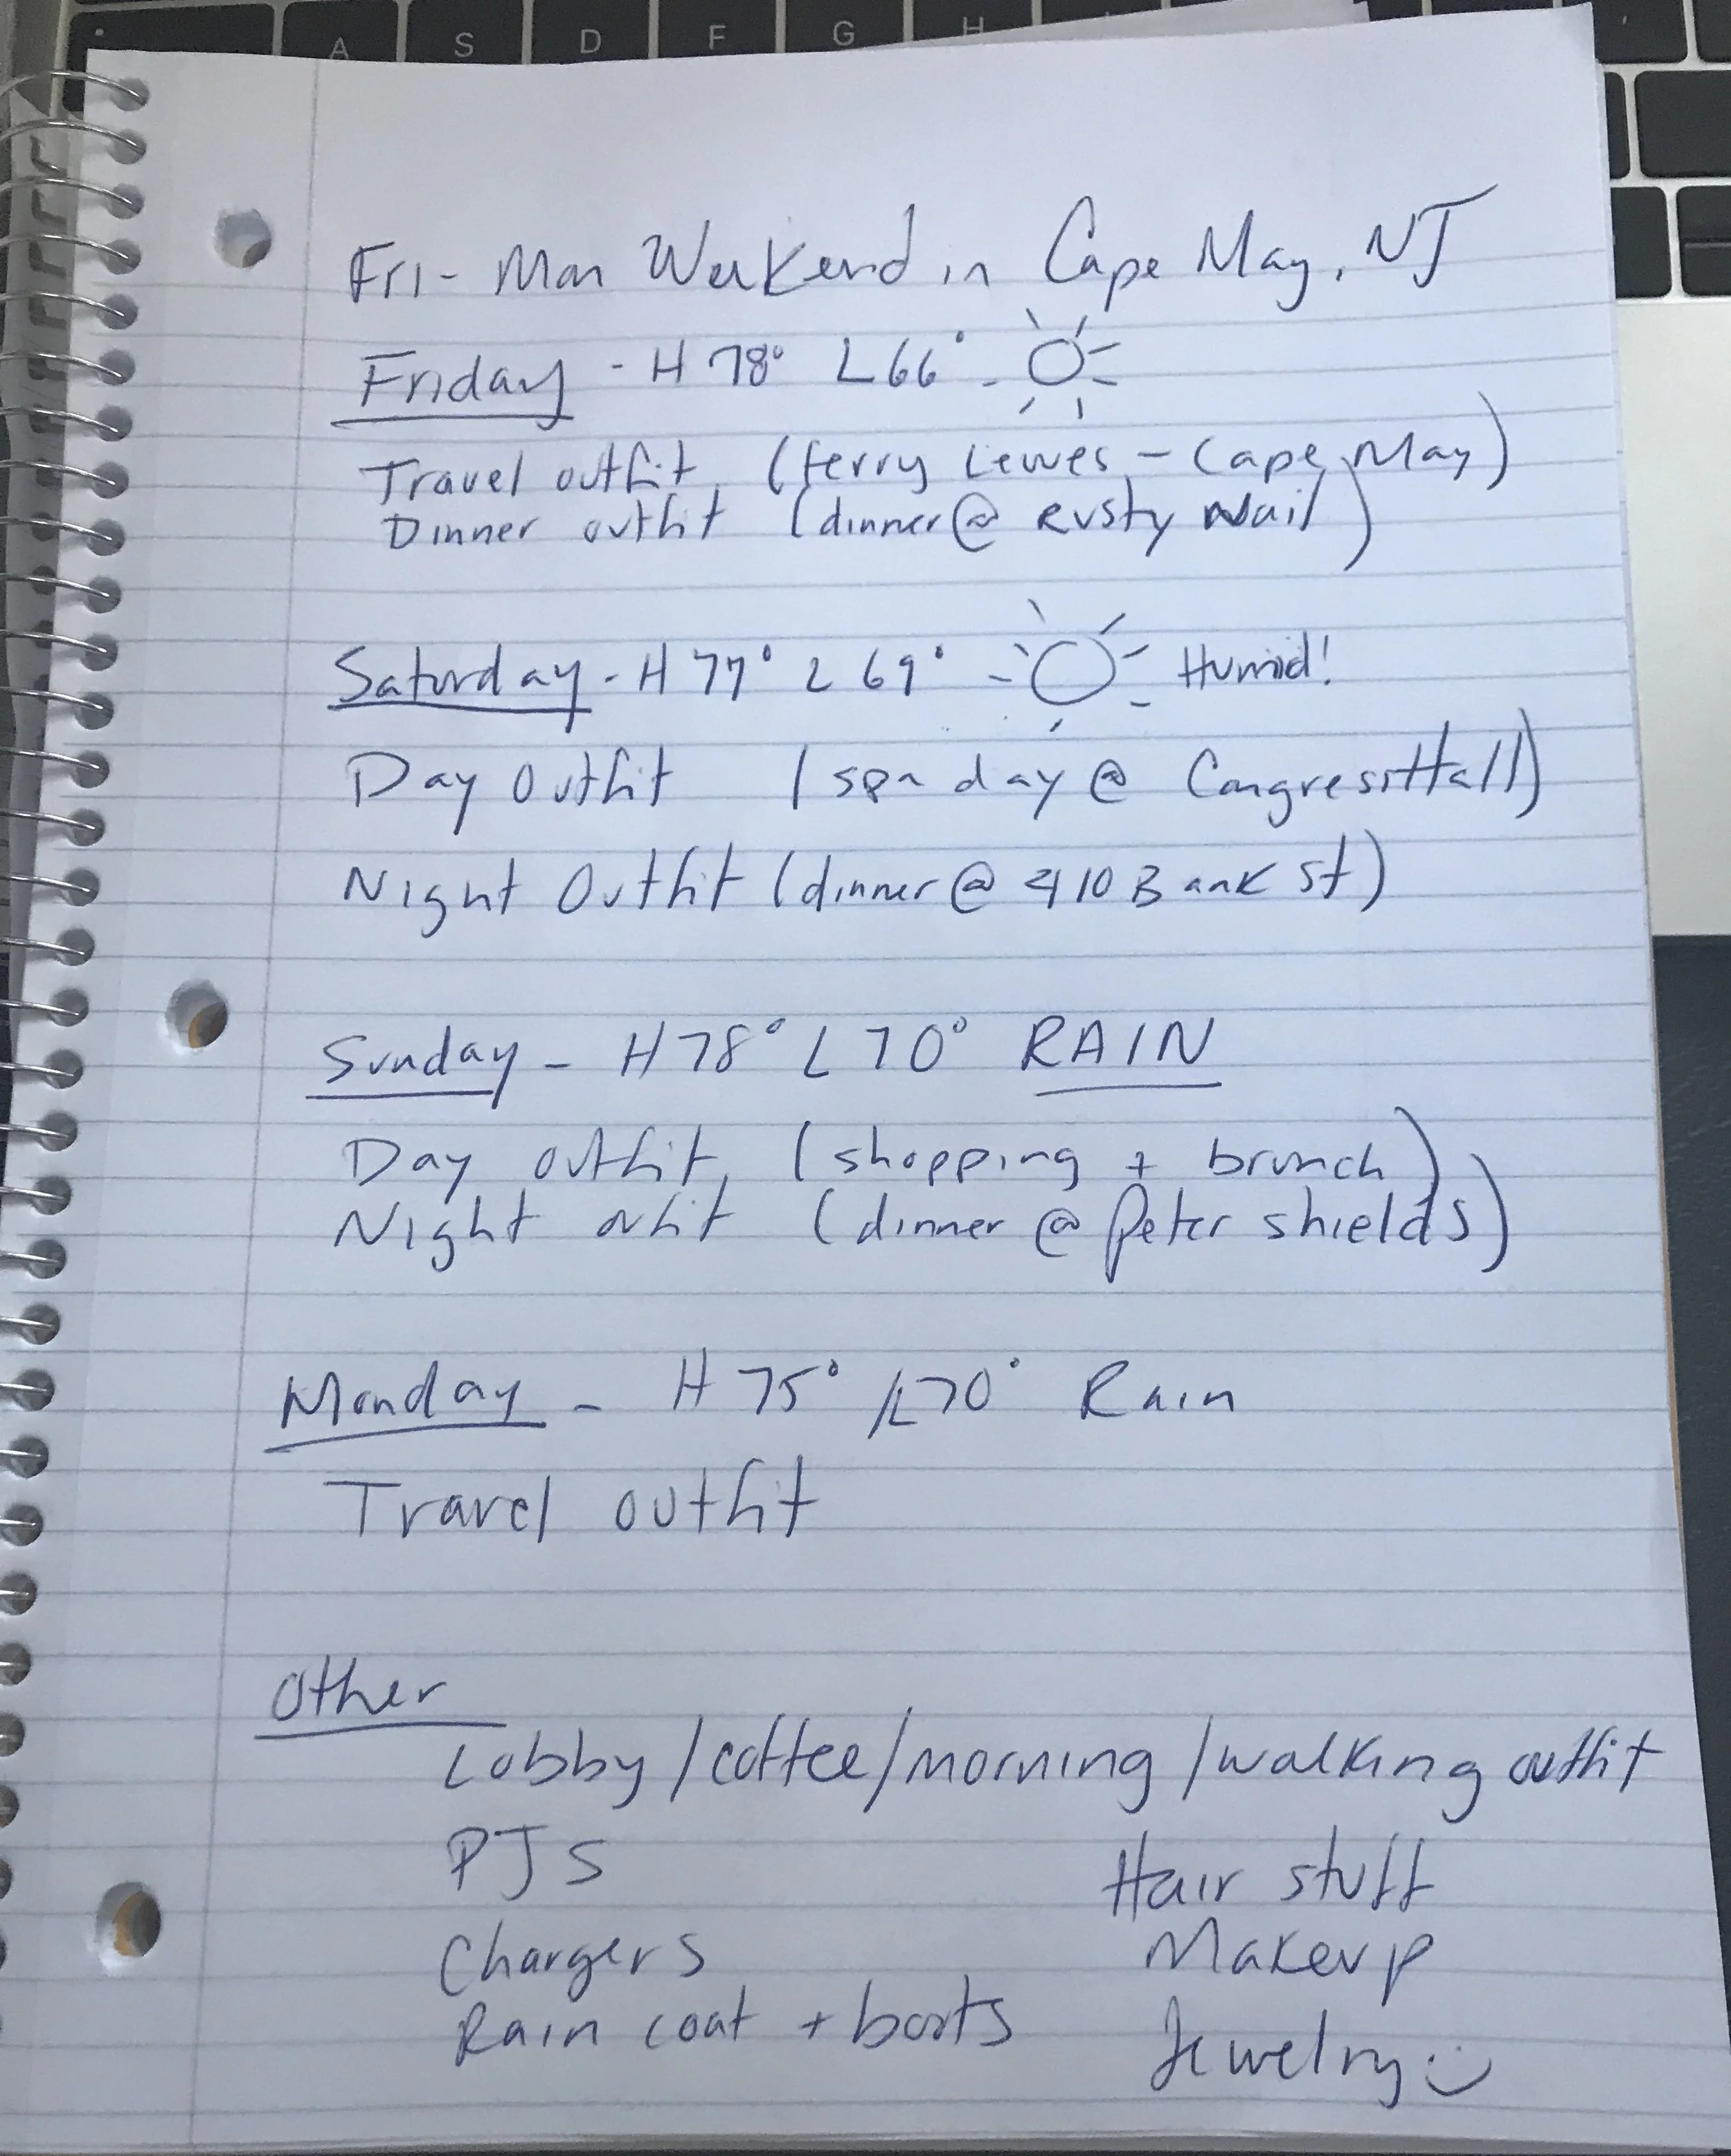 A S D F G H
Fri - Mon Weekend in Cape May, NJ
Friday - H 78° L 66° -
Travel outfit (ferry Lewes - Cape May)
Dinner outfit (dinner @ Rusty Nail)
Saturday - H 77° L 69° - Humid!
Day Outfit (spa day @ Congress Hall)
Night Outfit (dinner @ 410 Bank St)
Sunday - H 78° L 70° RAIN
Day outfit (shopping + brunch)
Night outfit (dinner @ Peter Shields)
Monday - H 75° / L 70° Rain
Travel outfit
Other
Lobby / coffee / morning / walking outfit
PJS
Hair stuff
Chargers
Makeup
Rain coat + boots
Jewelry :)